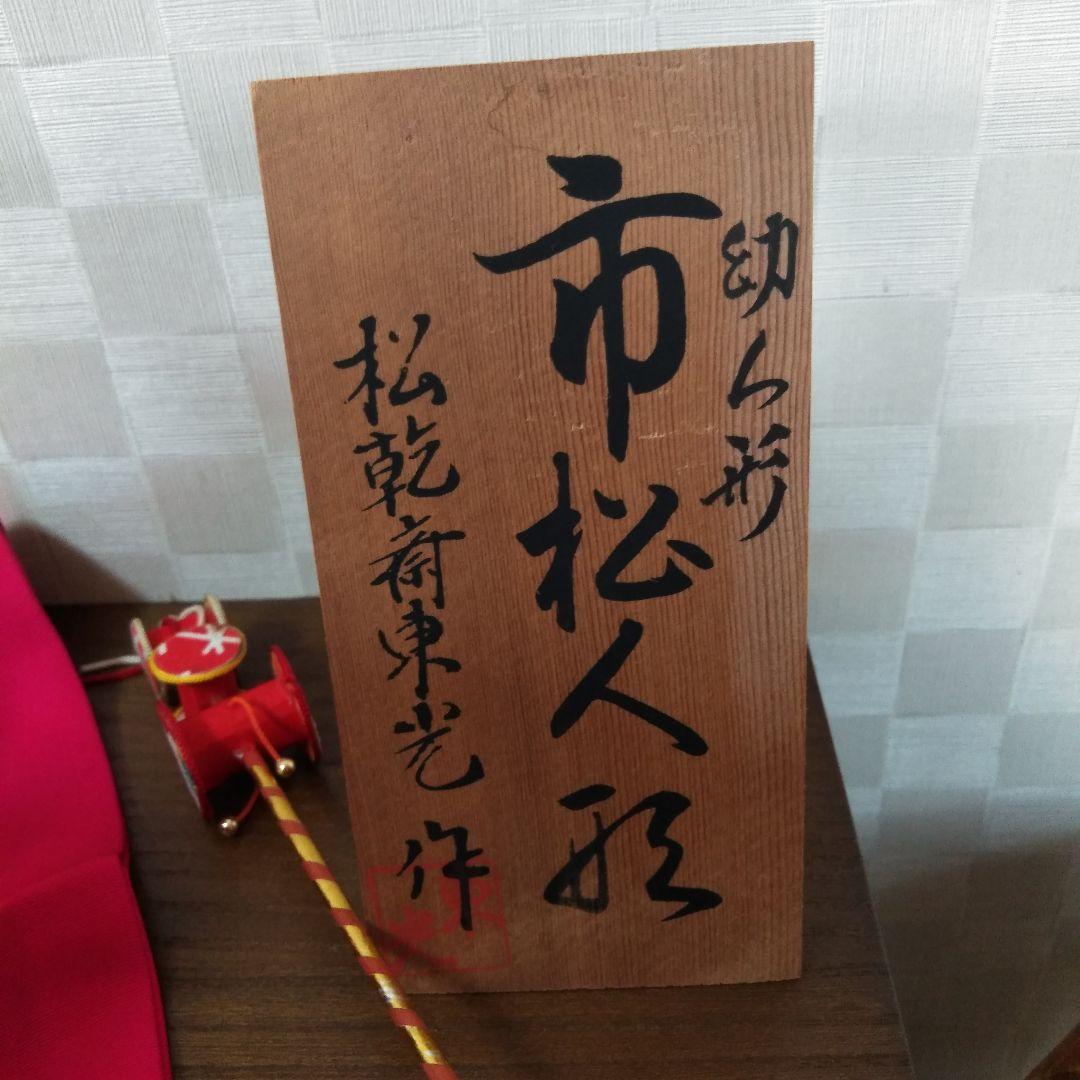 幼人形
市松人形
松乾斎東光 作